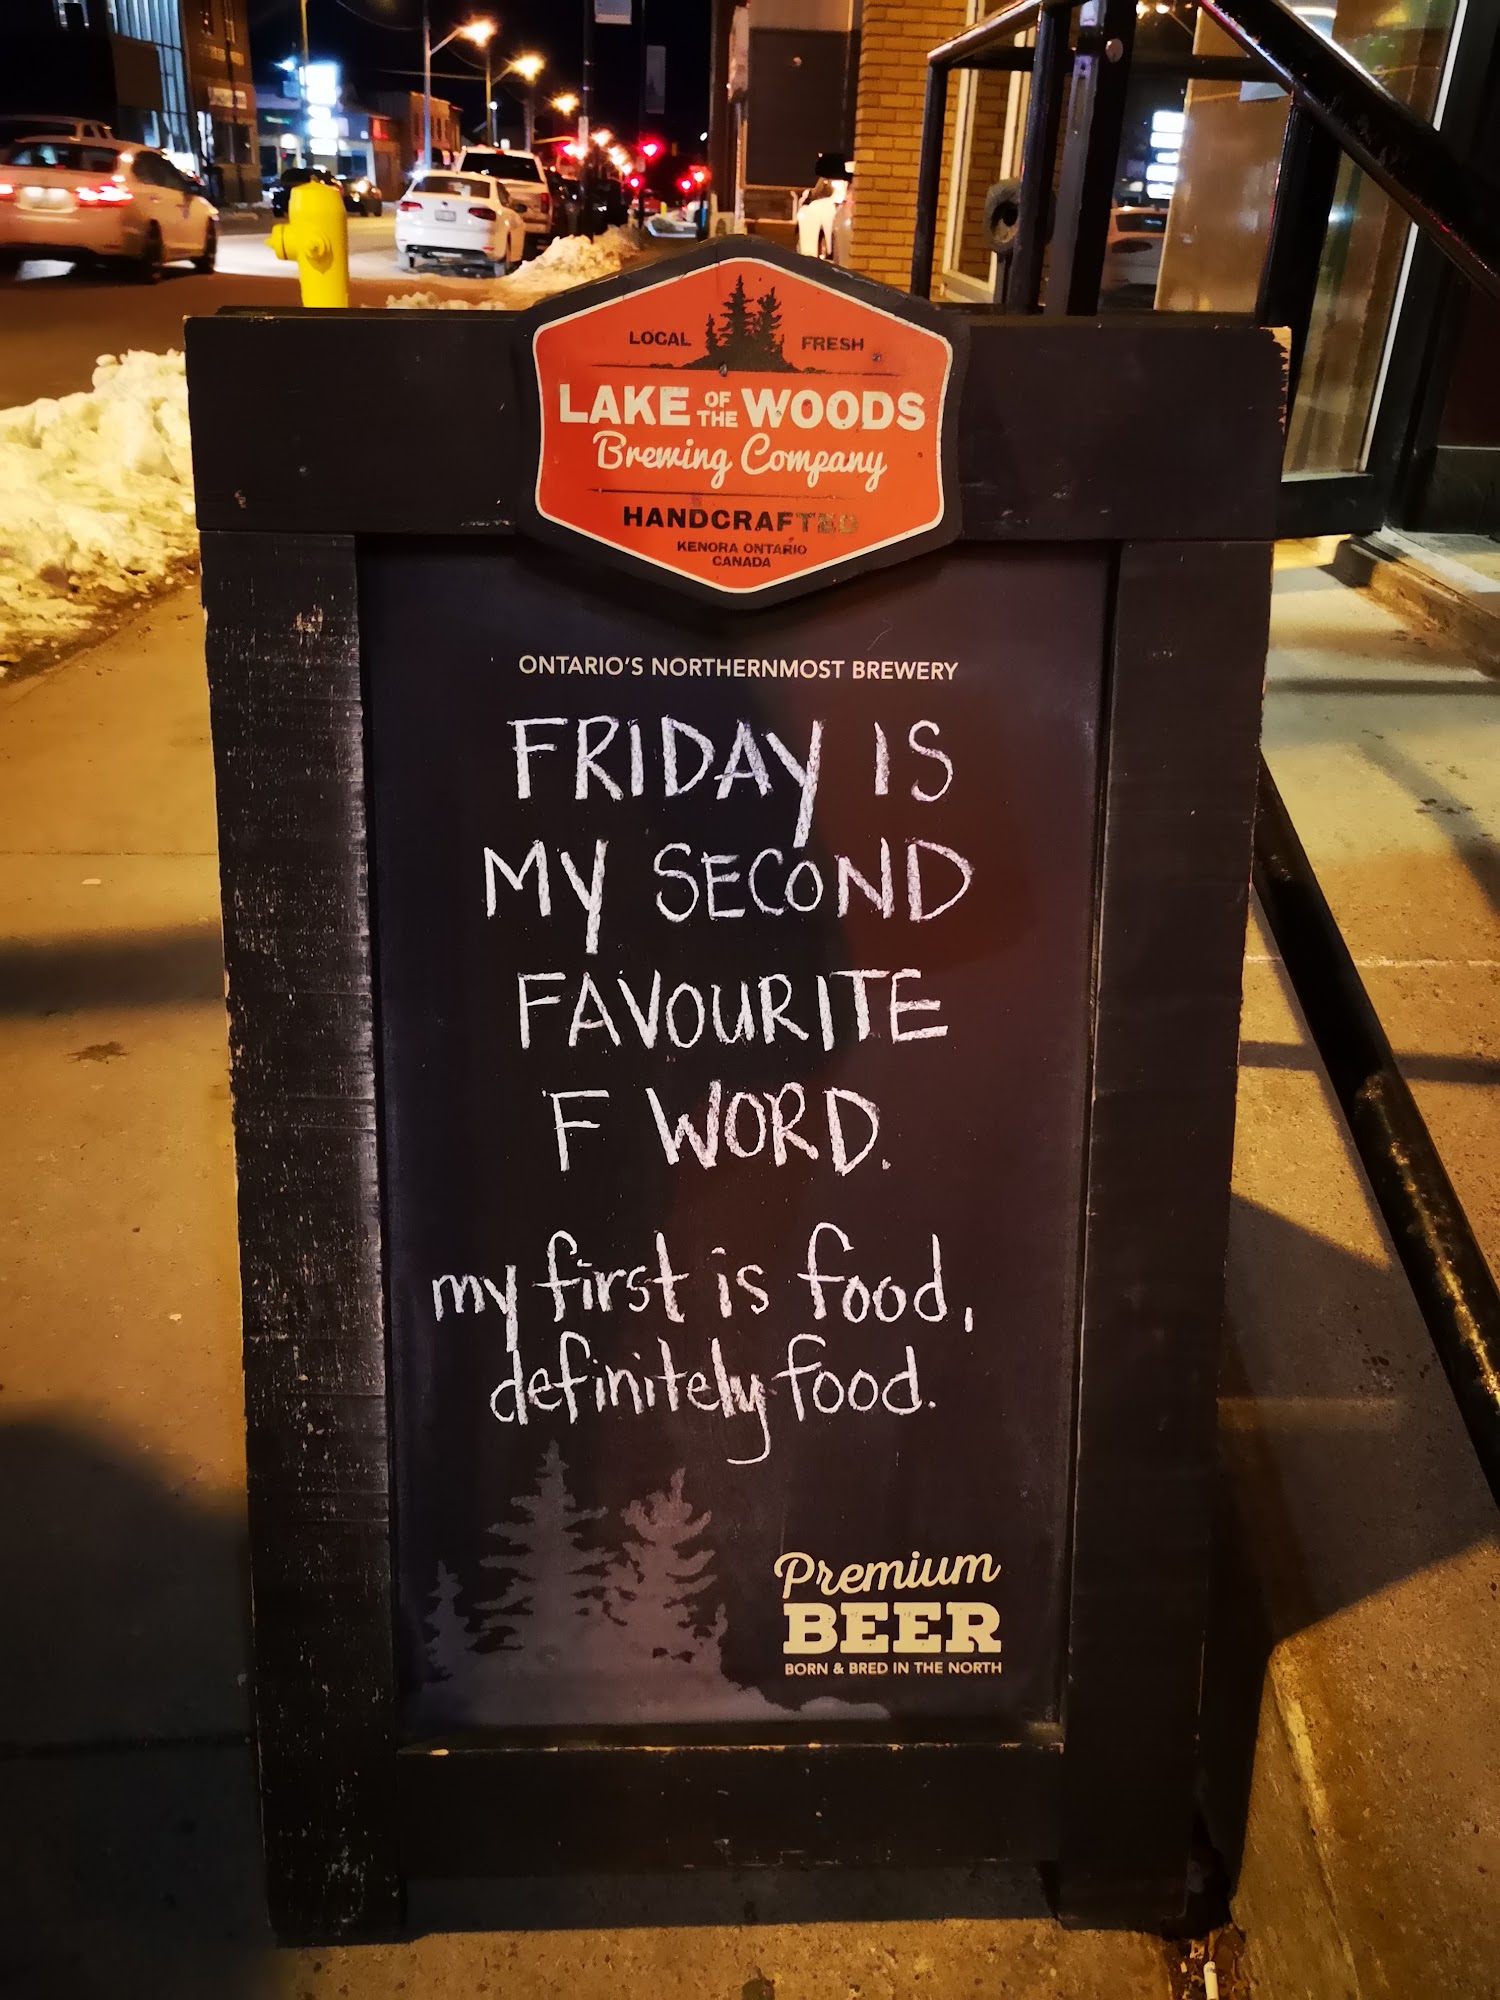 LOCAL FRESH
LAKE OF THE WOODS
Brewing Company
HANDCRAFTED
KENORA ONTARIO
CANADA
ONTARIO'S NORTHERNMOST BREWERY
FRIDAY IS
MY SECOND
FAVOURITE
F WORD.
my first is food,
definitely food.
Premium
BEER
BORN & BRED IN THE NORTH